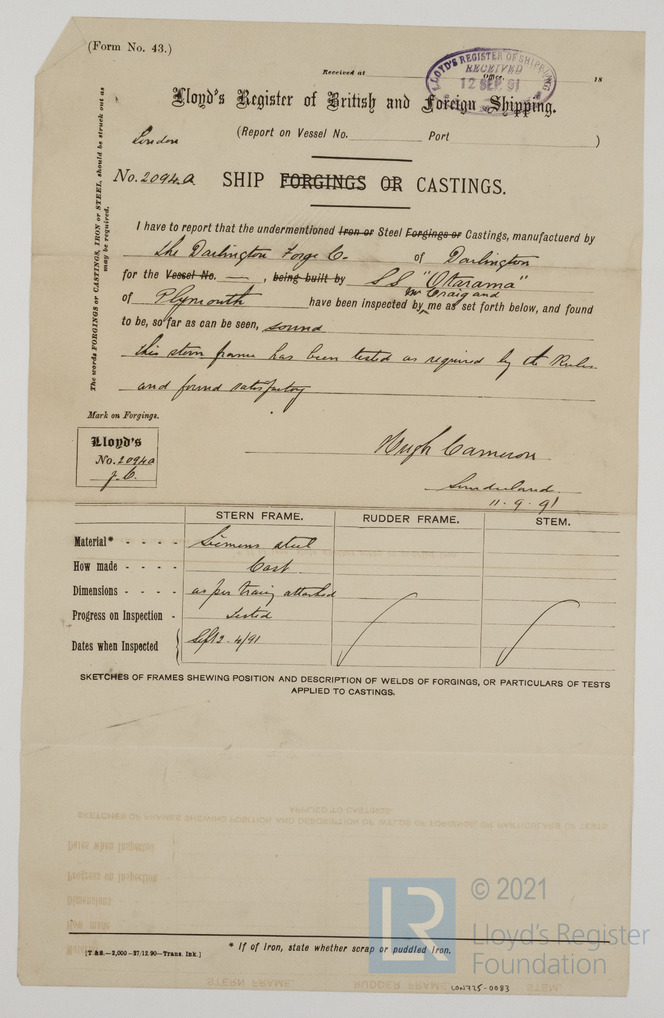 (Form No. 43.)
Received at Office, 18
LLOYD'S REGISTER OF SHIPPING
RECEIVED
12 SEP. 91
Lloyd's Register of British and Foreign Shipping.
(Report on Vessel No. Port )
London
No. 2094.a SHIP FORGINGS OR CASTINGS.
The words FORGINGS or CASTINGS, IRON or STEEL, should be struck out as
may be required.
I have to report that the undermentioned Iron or Steel Forgings or Castings, manufactuerd by
the Darlington Forge Co. of Darlington
for the Vessel No. — , being built by SS "Otarama"
Mr Craig and
of Plymouth have been inspected by me as set forth below, and found
to be, so far as can be seen, sound
This stern frame has been tested as required by the Rules
and found satisfactory
Mark on Forgings.
Lloyd's
No. 2094a
Hugh Cameron
Sunderland
11.9.91
STERN FRAME. RUDDER FRAME. STEM.
Material* - - - - Siemens steel
How made - - - - Cast
Dimensions - - - - as per tracing attached
Progress on Inspection - Tested
Dates when Inspected Sept 2. 4/91
SKETCHES OF FRAMES SHEWING POSITION AND DESCRIPTION OF WELDS OF FORGINGS, OR PARTICULARS OF TESTS
APPLIED TO CASTINGS.
* If of Iron, state whether scrap or puddled iron.
[T & S.—2,000—27/12.90—Trans. Ink.]
LON725-0083
LR
© 2021
Lloyd's Register
Foundation